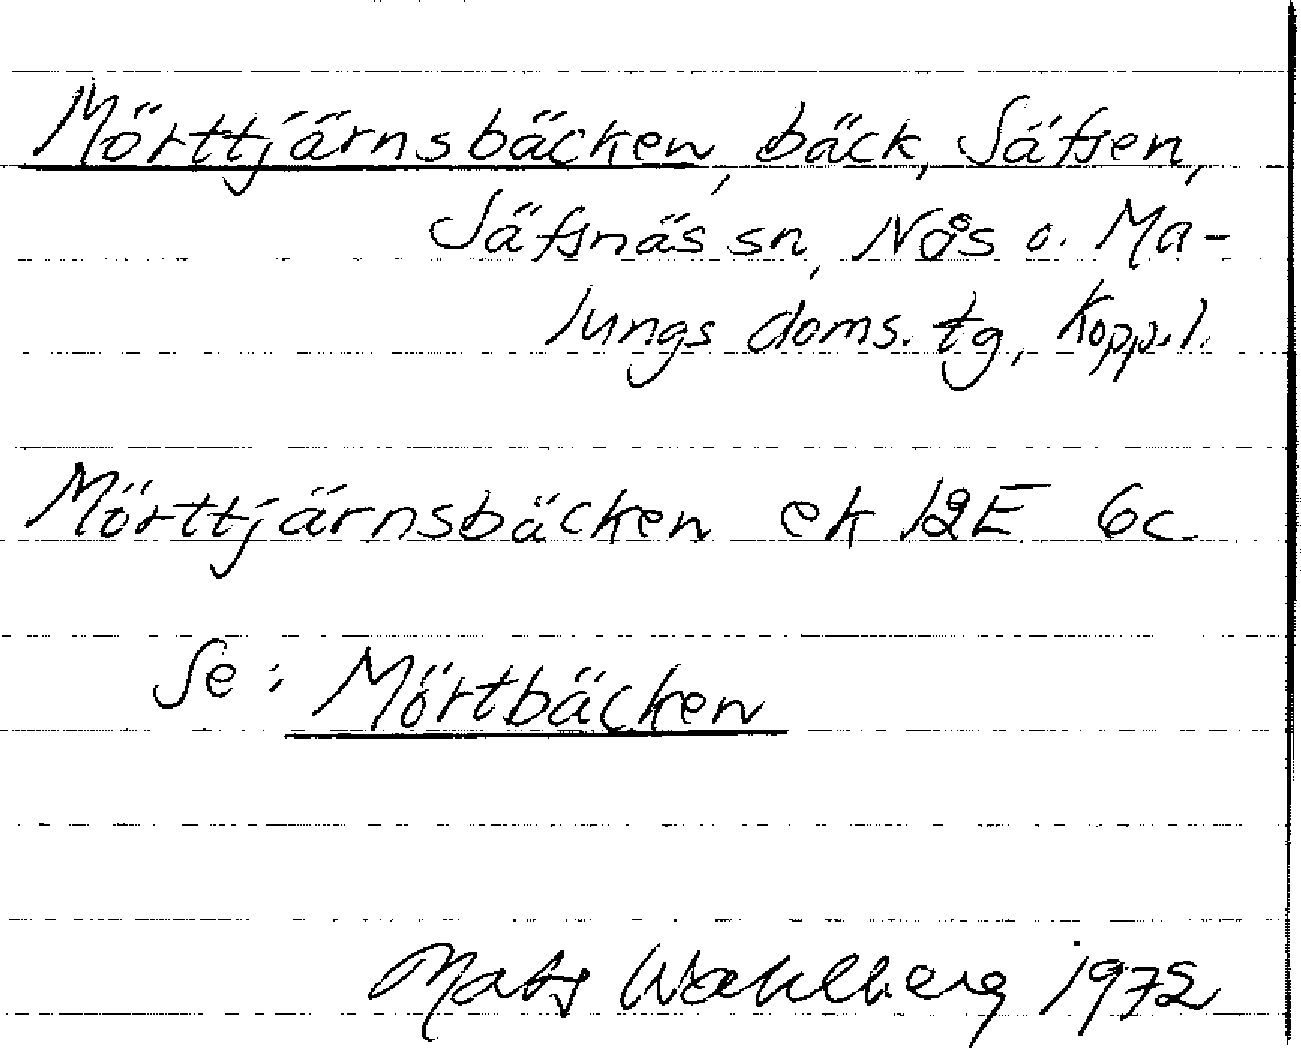 Mörttjärnsbäcken, bäck, Säfsen,
Säfsnäs sn, Nås o. Ma-
lungs doms. tg, Kopp.l.
Mörttjärnsbäcken ek 12E 6c
Se: Mörtbäcken
Mats Wahlberg 1972